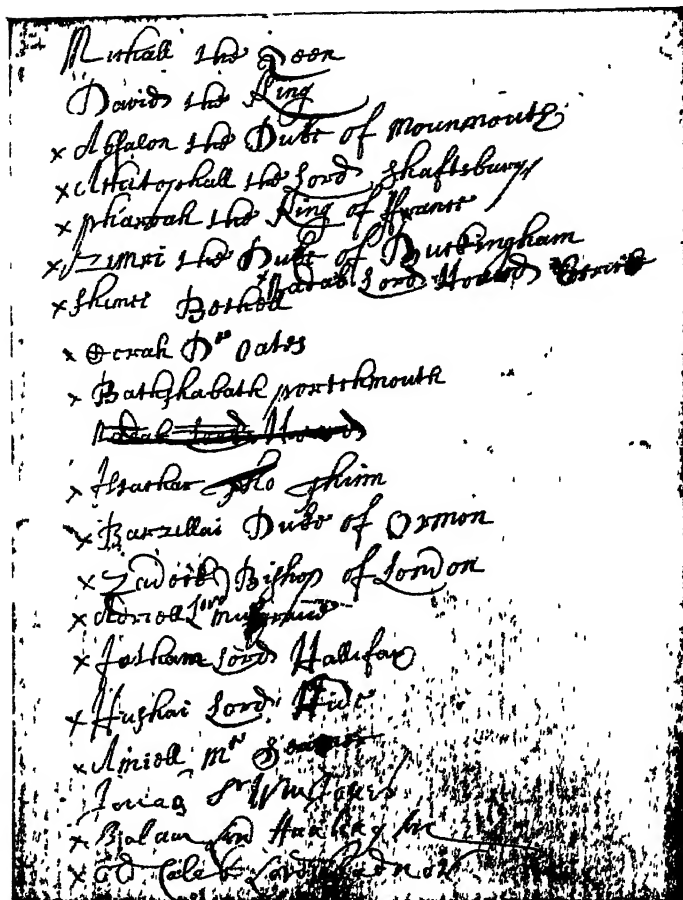 Michall the Qeen
David the King
x Absalon the Duke of Mounmouth
x Achitophall the Lord Shaftsbury
x pharoah the King of France
x Zimri the Duke of Buckingham
x Nadab Lord Howard
x Shimei Bethell
x Corah Dr Oates
x Bathshabath portchmouth
Nadab Lord Howard
x Issachar Tho Thinn
x Barzillai Duke of Ormon
x Zadock Bishop of London
x Adriell Lord
x Jotham Lord Hallifax
x Hushai Lord Hide
x Amiell Mr
Jonas Sr Wm Jones
x Balaam Lord
x Old Caleb Lord